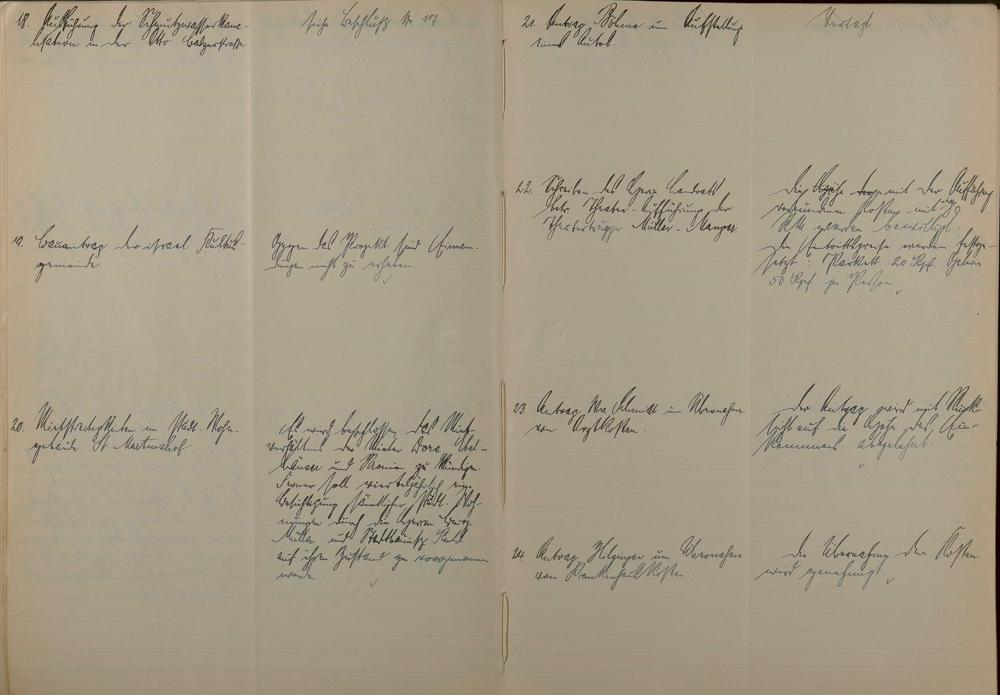 18. Ausführung der Schmutzwasserkana-
lisation in der Otto Balzerstrasse
siehe Beschluss Nr. 17
19. Bauantrag der israel. Kultus-
gemeinde
Gegen das Projekt sind Einwen-
dungen nicht zu erheben.
20. Mietstreitigkeiten im städt. Wohn-
gebäude St. Martinshof
Es wird beschlossen, das Miet-
verhältnis des Mieter Dora
und zu kündigen.
Ferner soll vierteljährlich eine
Besichtigung sämtlicher städt. Woh-
nungen durch die Herren
Müller und
auf ihren Zustand zu vorgenommen
werden.
21. Antrag um Aufstellung
eines Autos.
Vertagt
22. Schreiben des Herrn Landrats
betr. Theater-Aufführung der
Theatertruppe Müller-
Die mit der Aufführung
verbundenen Kosten mit
RM werden bewilligt.
Die Eintrittspreise werden festge-
setzt: Parkett 20 Rpf.
50 Rpf. pro Person.
23. Antrag Schmidt um Übernahme
von Kosten.
Der Antrag wird mit Rück-
sicht auf die Höhe des Ein-
kommens abgelehnt.
24. Antrag um Übernahme
von Krankenhauskosten.
Die Übernahme der Kosten
wird genehmigt.